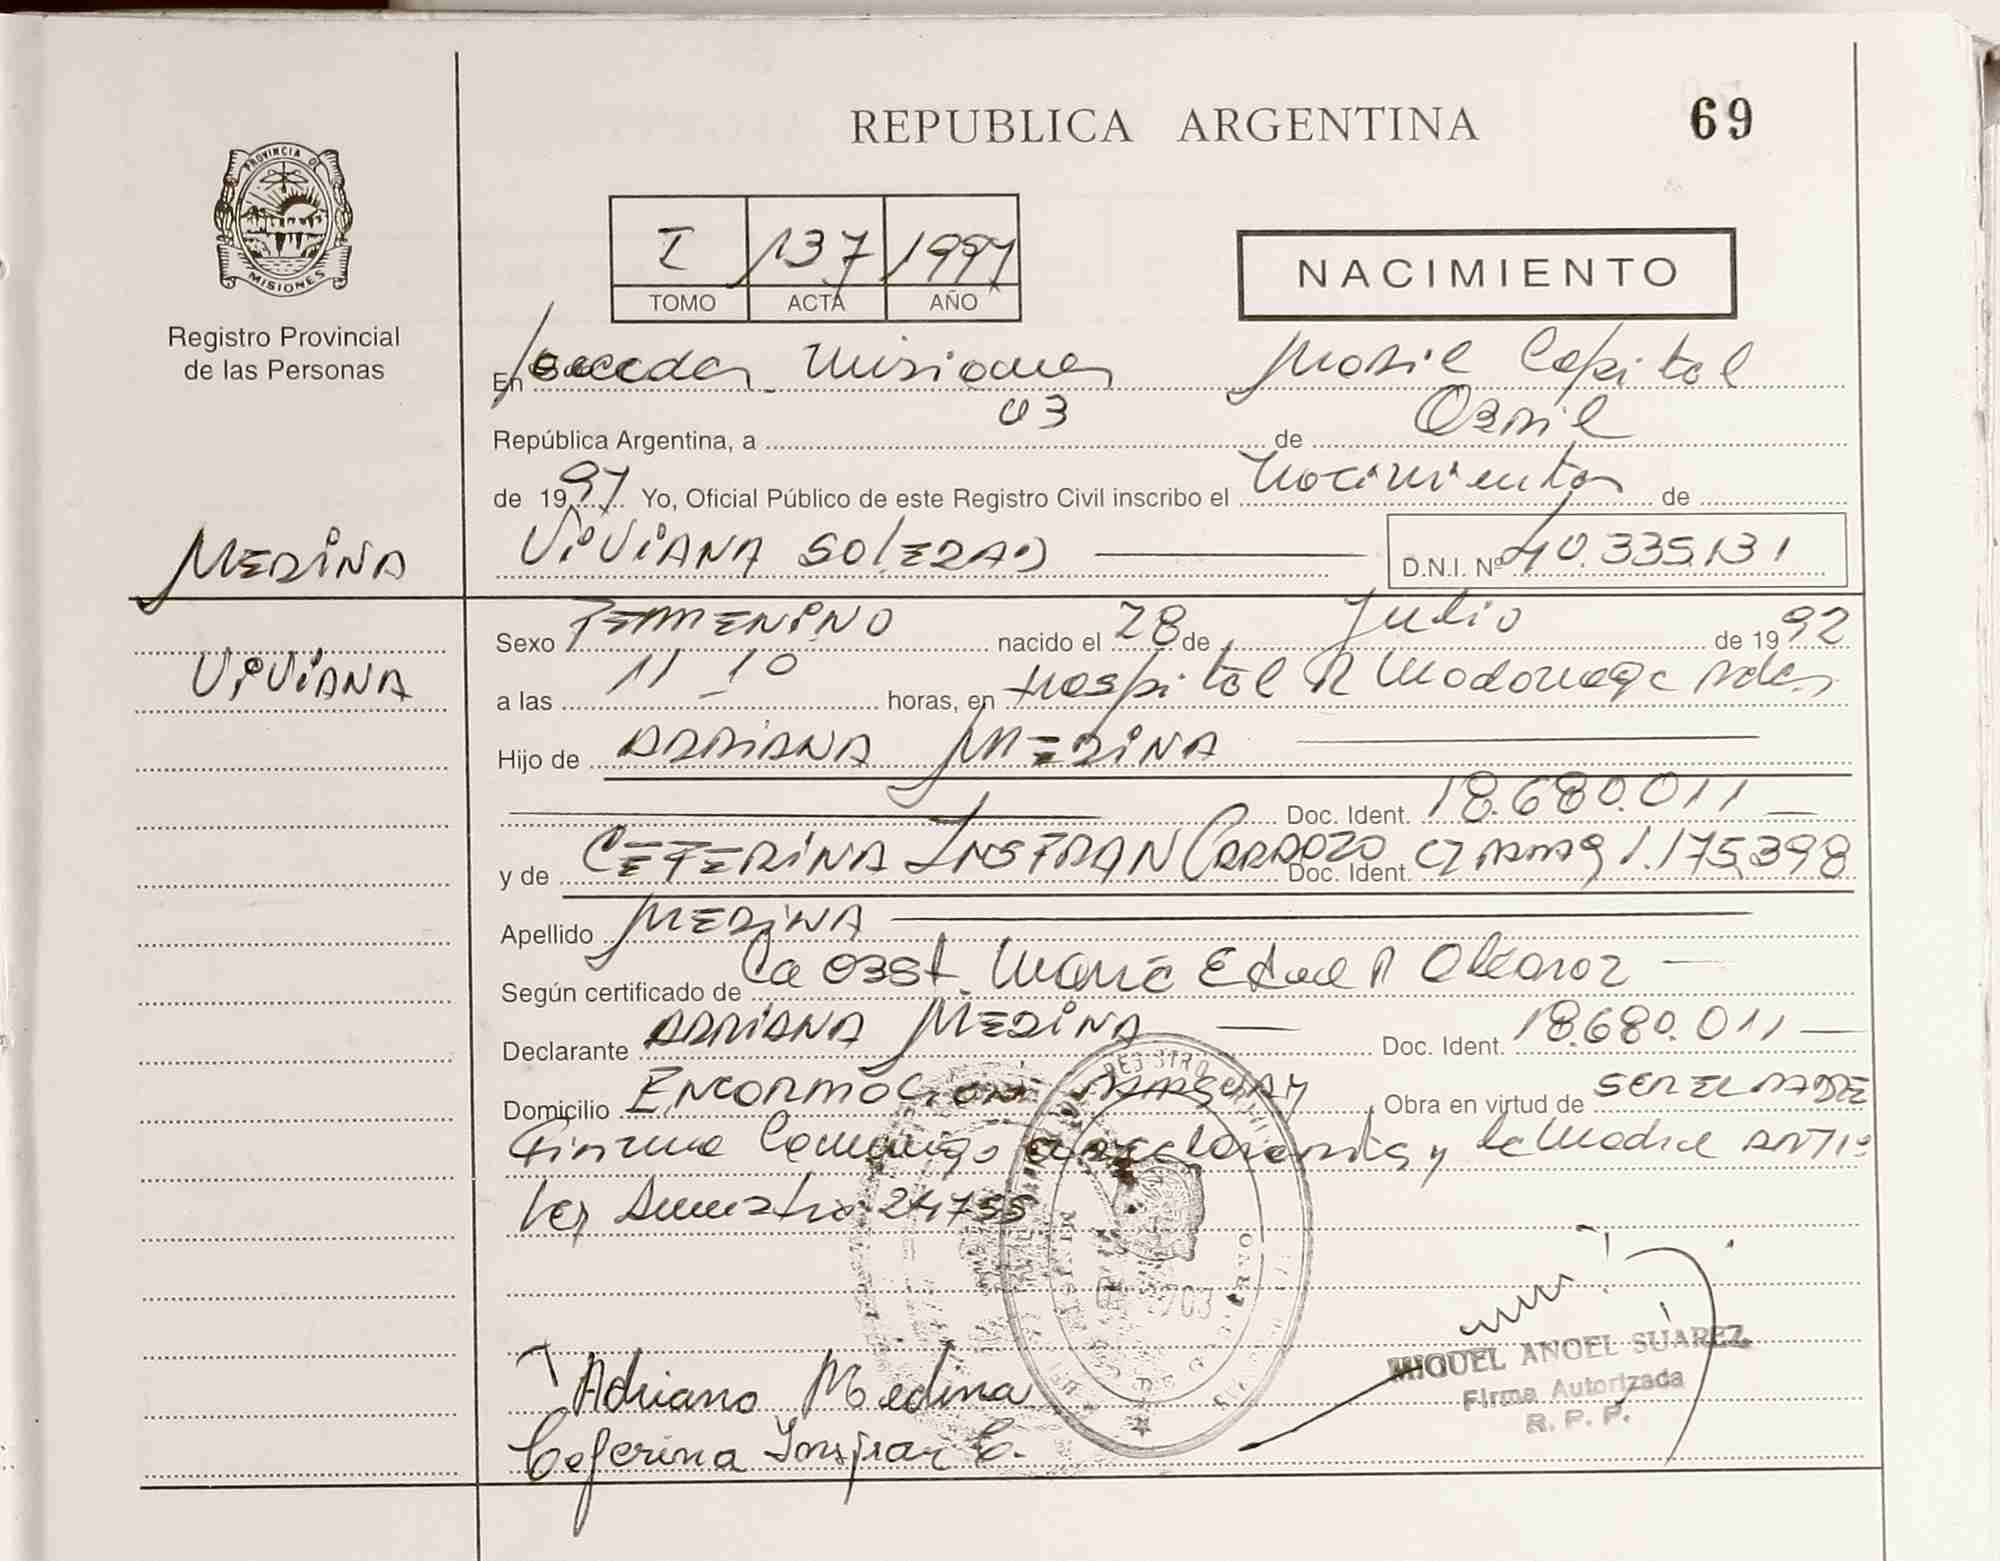 REPUBLICA ARGENTINA
69
PROVINCIA DE
MISIONES
Registro Provincial
de las Personas
I 137 1997
TOMO ACTA AÑO
NACIMIENTO
En Posadas Misiones Movil Capital
República Argentina, a 03 de Abril
de 1997 Yo, Oficial Público de este Registro Civil inscribo el nacimiento de
MEDINA
VIVIANA SOLEDAD
D.N.I. Nº 40.335.131
VIVIANA
Sexo FEMENINO nacido el 28 de Julio de 1992
a las 11 10 horas, en Hospital R Madariaga Pdas
Hijo de ADRIANA MEDINA
Doc. Ident. 18.680.011
y de CEFERINA INSFRAN CARDOZO Doc. Ident. 1.175.398
Apellido MEDINA
Según certificado de la Obst. Maria
Declarante ADRIANA MEDINA Doc. Ident. 18.680.011
Domicilio ENCARNACION PARAGUAY Obra en virtud de SER EL PADRE
y la Madre
24755
MIGUEL ANGEL SUAREZ
Firma Autorizada
R. P. P.
Adriano Medina
Ceferina Insfran C.